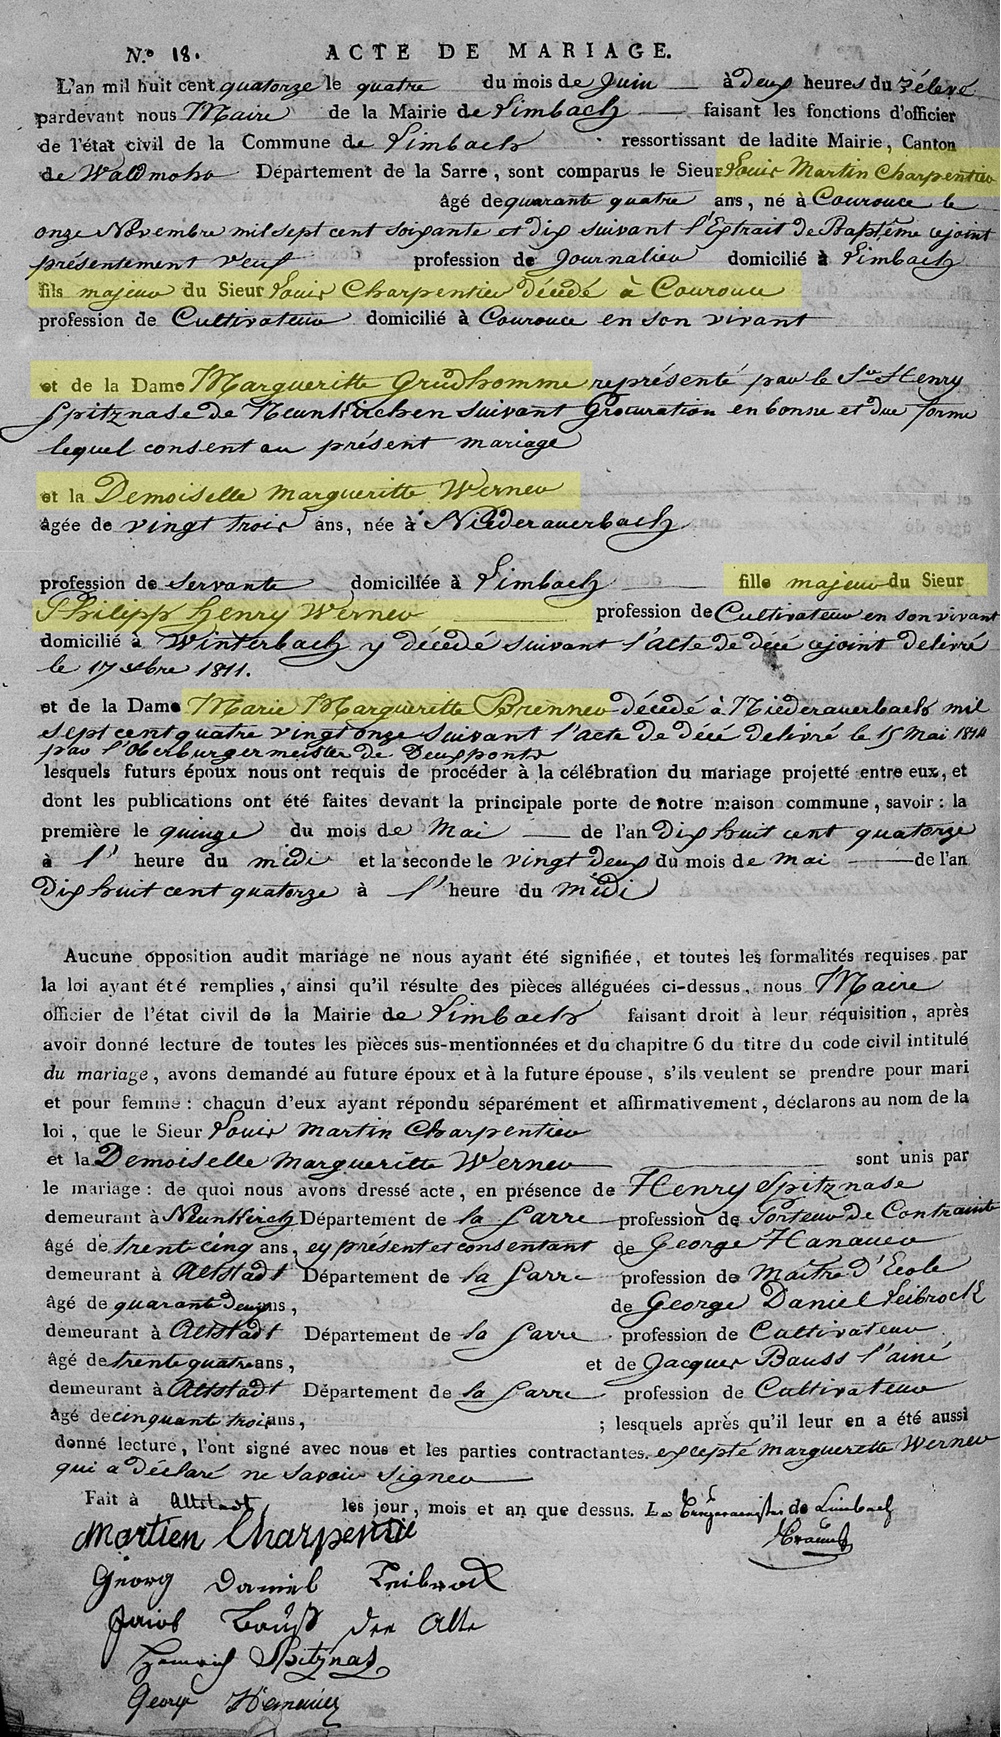 N.º 18. ACTE DE MARIAGE.
L'an mil huit cent quatorze le quatre du mois de Juin à deux heures du relevé
pardevant nous Maire de la Mairie de Limbach faisant les fonctions d'officier
de l'état civil de la Commune de Limbach ressortissant de ladite Mairie, Canton
de Waldmohr Département de la Sarre, sont comparus le Sieur Louis Martin Charpentier
âgé de quarante quatre ans, né à Courouce le
onze Novembre mil sept cent soixante et dix suivant l'Extrait de Baptême cejoint
présentement veuf profession de Journalier domicilié à Limbach
fils majeur du Sieur Louis Charpentier décédé à Courouce
profession de Cultivateur domicilié à Courouce en son vivant
et de la Dame Margueritte Grudhomme représenté par le Sr Henry
Spitznase de Neunkirchen suivant Procuration en bonne et due forme
lequel consent au présent mariage
et la Demoiselle Margueritte Werner
âgée de vingt trois ans, née à Niederauerbach
profession de Servante domiciliée à Limbach fille majeur du Sieur
Philipp Henry Werner profession de Cultivateur en son vivant
domicilié à Winterbach y décédé suivant l'acte de décé cejoint delivré
le 17 xbre 1811.
et de la Dame Marie Margueritte Brenner décédé à Niederauerbach mil
sept cent quatre vingt onze suivant l'acte de décé delivré le 15 Mai 1814
par l'Oberburgermeister de Deuxponts
lesquels futurs époux nous ont requis de procéder à la célébration du mariage projetté entre eux, et
dont les publications ont été faites devant la principale porte de notre maison commune, savoir: la
première le quinze du mois de Mai de l'an Dix huit cent quatorze
à l' heure du midi et la seconde le vingt deux du mois de mai de l'an
Dix huit cent quatorze à l' heure du Midi
Aucune opposition audit mariage ne nous ayant été signifiée, et toutes les formalités requises par
la loi ayant été remplies, ainsi qu'il résulte des pièces alléguées ci-dessus, nous Maire
officier de l'état civil de la Mairie de Limbach faisant droit à leur réquisition, après
avoir donné lecture de toutes les pièces sus-mentionnées et du chapitre 6 du titre du code civil intitulé
du mariage, avons demandé au future époux et à la future épouse, s'ils veulent se prendre pour mari
et pour femme: chacun d'eux ayant répondu séparément et affirmativement, déclarons au nom de la
loi, que le Sieur Louis Martin Charpentier
et la Demoiselle Margueritte Werner sont unis par
le mariage: de quoi nous avons dressé acte, en présence de Henry Spitznase
demeurant à Neunkirch Département de la Sarre profession de Porteur de Contrainte
âgé de trent cinq ans, ey présent et consentant de George Hanauer
demeurant à Altstadt Département de la Sarre profession de Maitre d'Ecole
âgé de quarant deux ans, de George Daniel Leibrock
demeurant à Altstadt Département de la Sarre profession de Cultivateur
âgé de trente quatre ans, et de Jacques Bauss l'ainé
demeurant à Altstadt Département de la Sarre profession de Cultivateur
âgé de cinquant trois ans, ; lesquels après qu'il leur en a été aussi
donné lecture, l'ont signé avec nous et les parties contractantes. excepté Margueritte Werner
qui a déclaré ne savoir signer
Fait à Altstadt, les jour, mois et an que dessus. Le Burgermeister de Limbach
Martien Charpentié
Georg Daniel Leibrock
Jacob Bauß der Alte
Heinrich Spitznas
Georg Hanauer